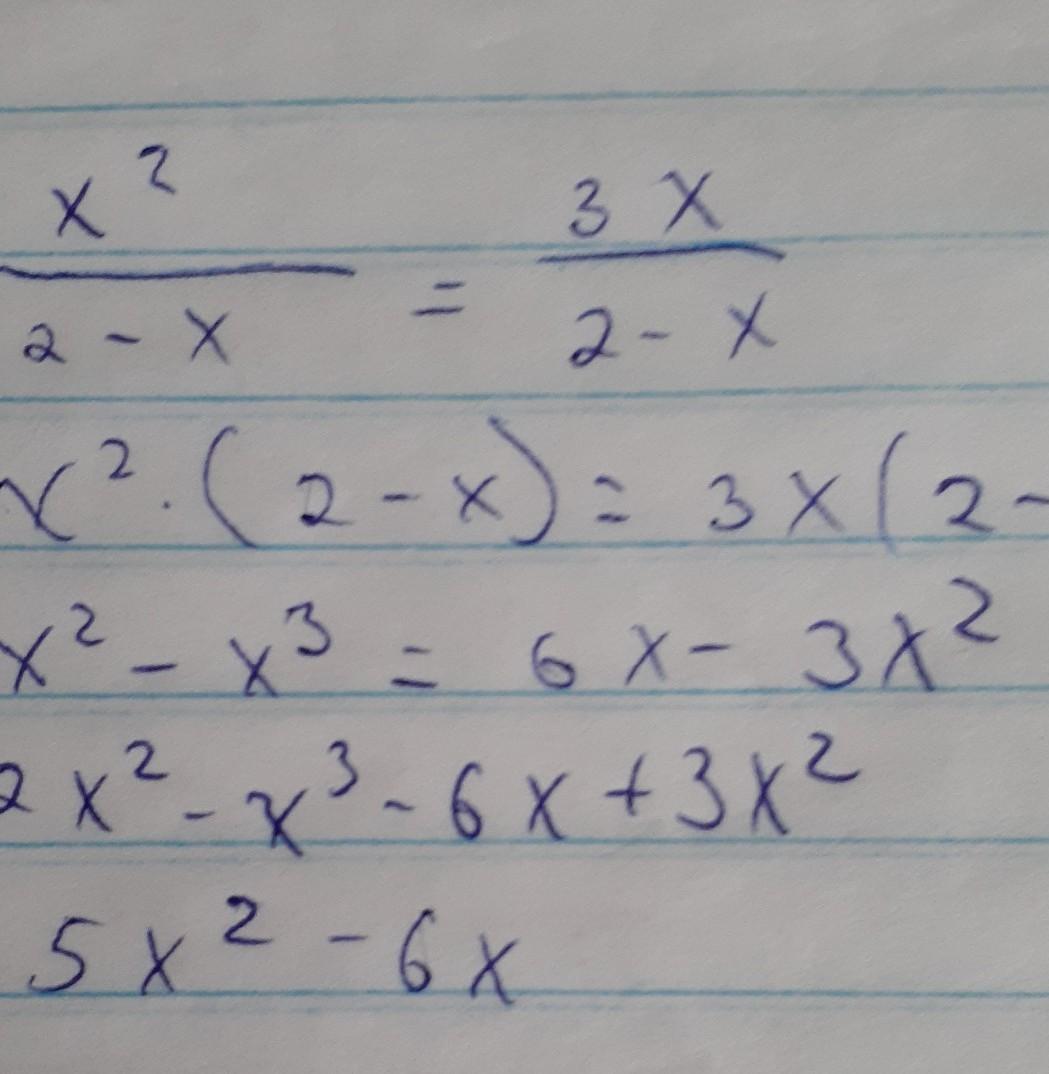 x² / 2 - x = 3x / 2 - x
x² · (2 - x) = 3x(2 -
x² - x³ = 6x - 3x²
2x² - x³ - 6x + 3x²
5x² - 6x